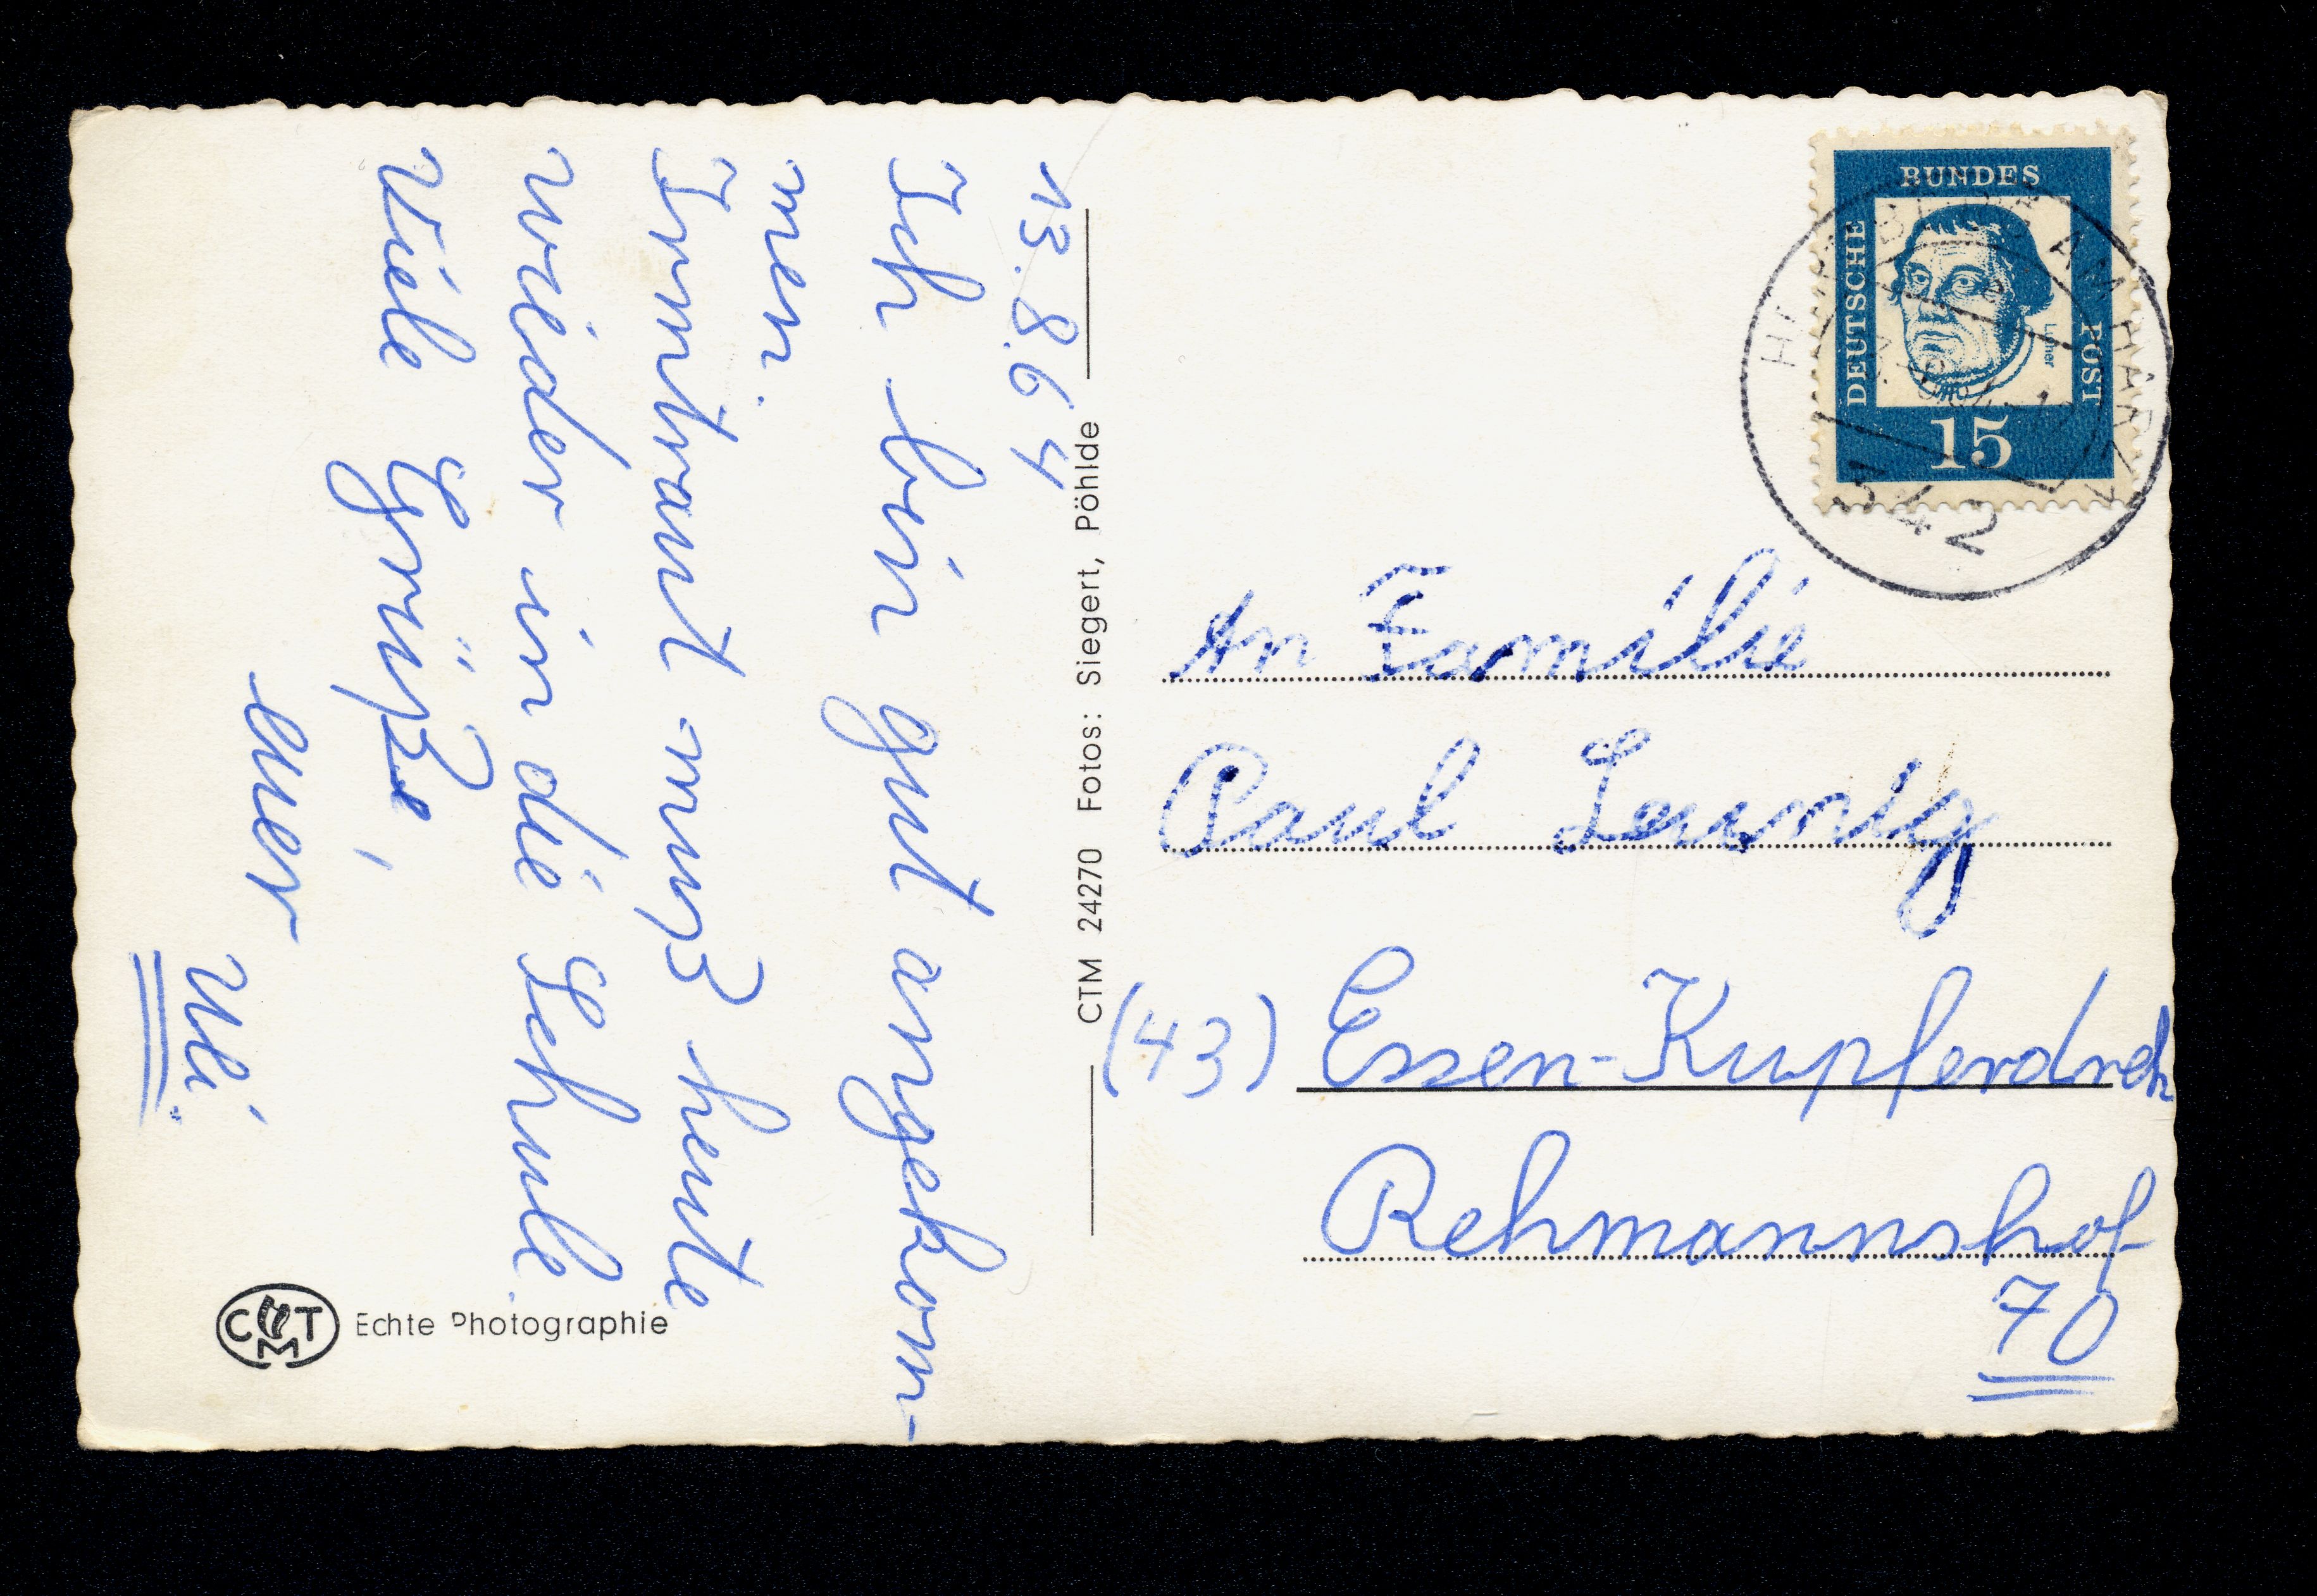 13.8.64
Ich bin gut angekom-
men.
Irmtraut muß heute
wieder in die Schule.
Viele Grüße,
euer
Uli.
CTM 24270 Fotos: Siegert, Pöhlde
Echte Photographie
C T M
DEUTSCHE
BUNDES
POST
Luther
15
AM HARZ
342
An Familie
Paul
(43) Essen-Kupferdreh
Rehmannshof
70